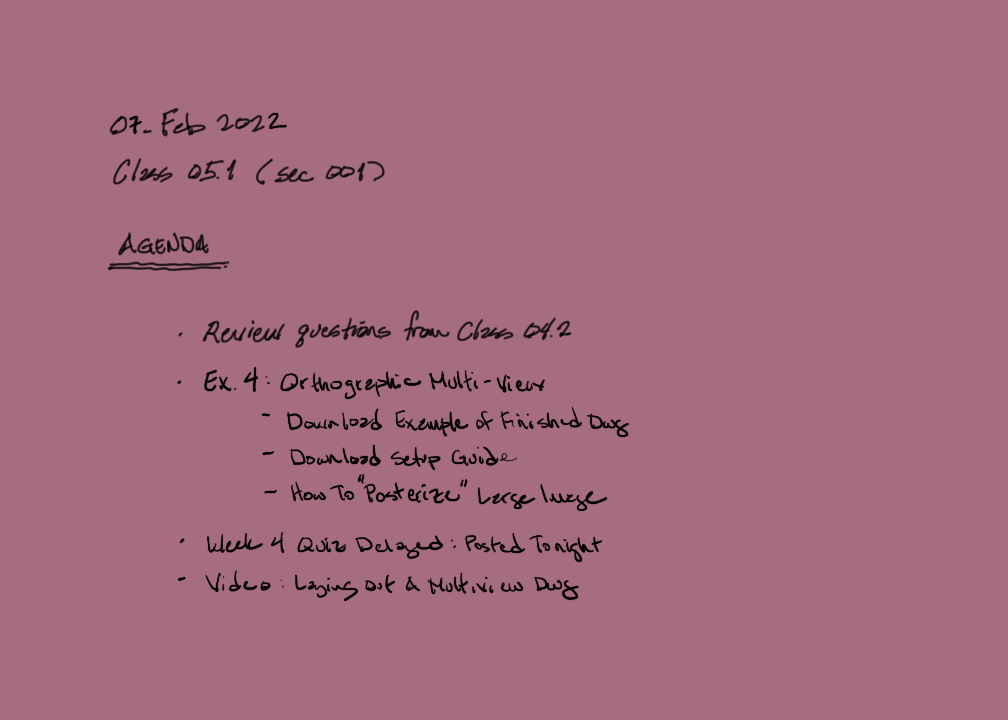 07. Feb 2022
Class 05.1 (sec 001)
AGENDA
· Review questions from Class 04.2
· Ex. 4: Orthographic Multi-View
- Download Example of Finished Dwg
- Download Setup Guide
- How To "Posterize" Large Image
· Week 4 Quiz Delayed: Posted Tonight
- Video: Laying out A Multiview Dwg